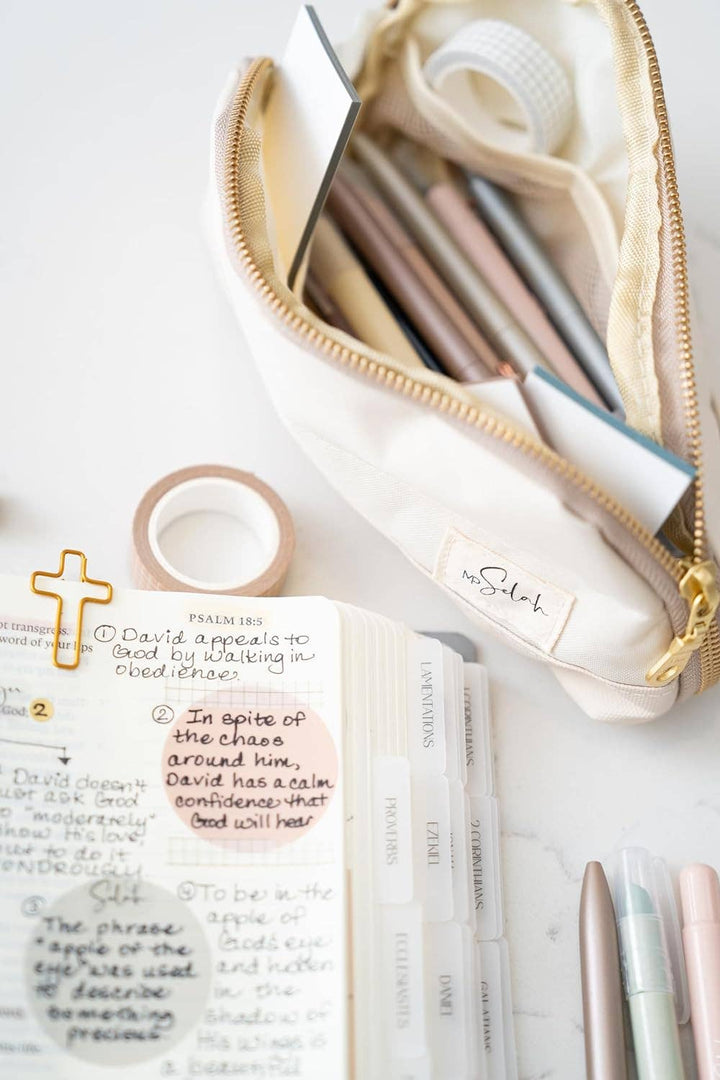 MP Selah
PSALM 18:5
ot transgress.
word of your lips
① David appeals to
God by walking in
obedience.
God; 2
② In spite of
the chaos
around him,
David has a calm
confidence that
God will hear
David doesn't
just ask God
to "moderately"
show His love,
but to do it
WONDROUSLY.
Selah
③ The phrase
"apple of the
eye" was used
to describe
something
precious.
④ To be in the
apple of
God's eye
and hidden
in the
shadow of
His wings is
a beautiful
PROVERBS
ECCLESIASTES
LAMENTATIONS
EZEKIEL
DANIEL
1 CORINTHIANS
2 CORINTHIANS
GALATIANS